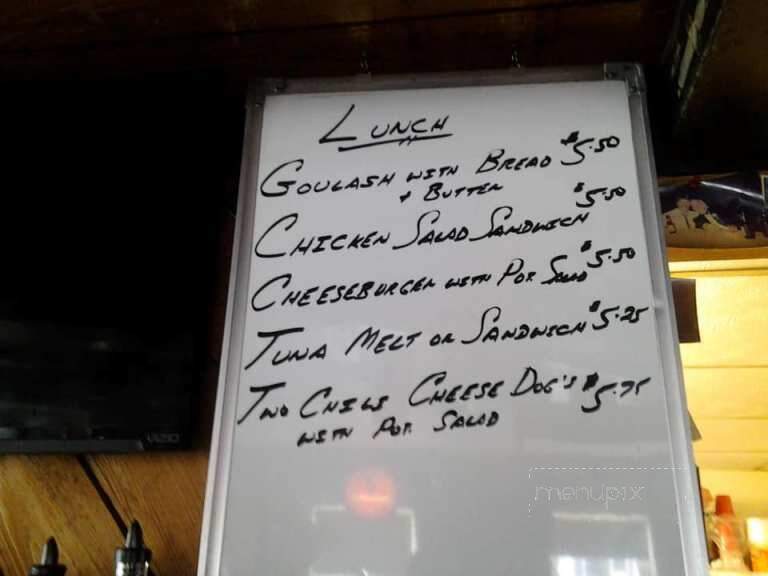 LUNCH
GOULASH WITH BREAD $5.50
+ BUTTER
CHICKEN SALAD SANDWICH $5.50
CHEESEBURGER WITH POT SALAD $5.50
TUNA MELT OR SANDWICH $5.25
TWO CHILI CHEESE DOG'S $5.75
WITH POT. SALAD
VIZIO
menupix